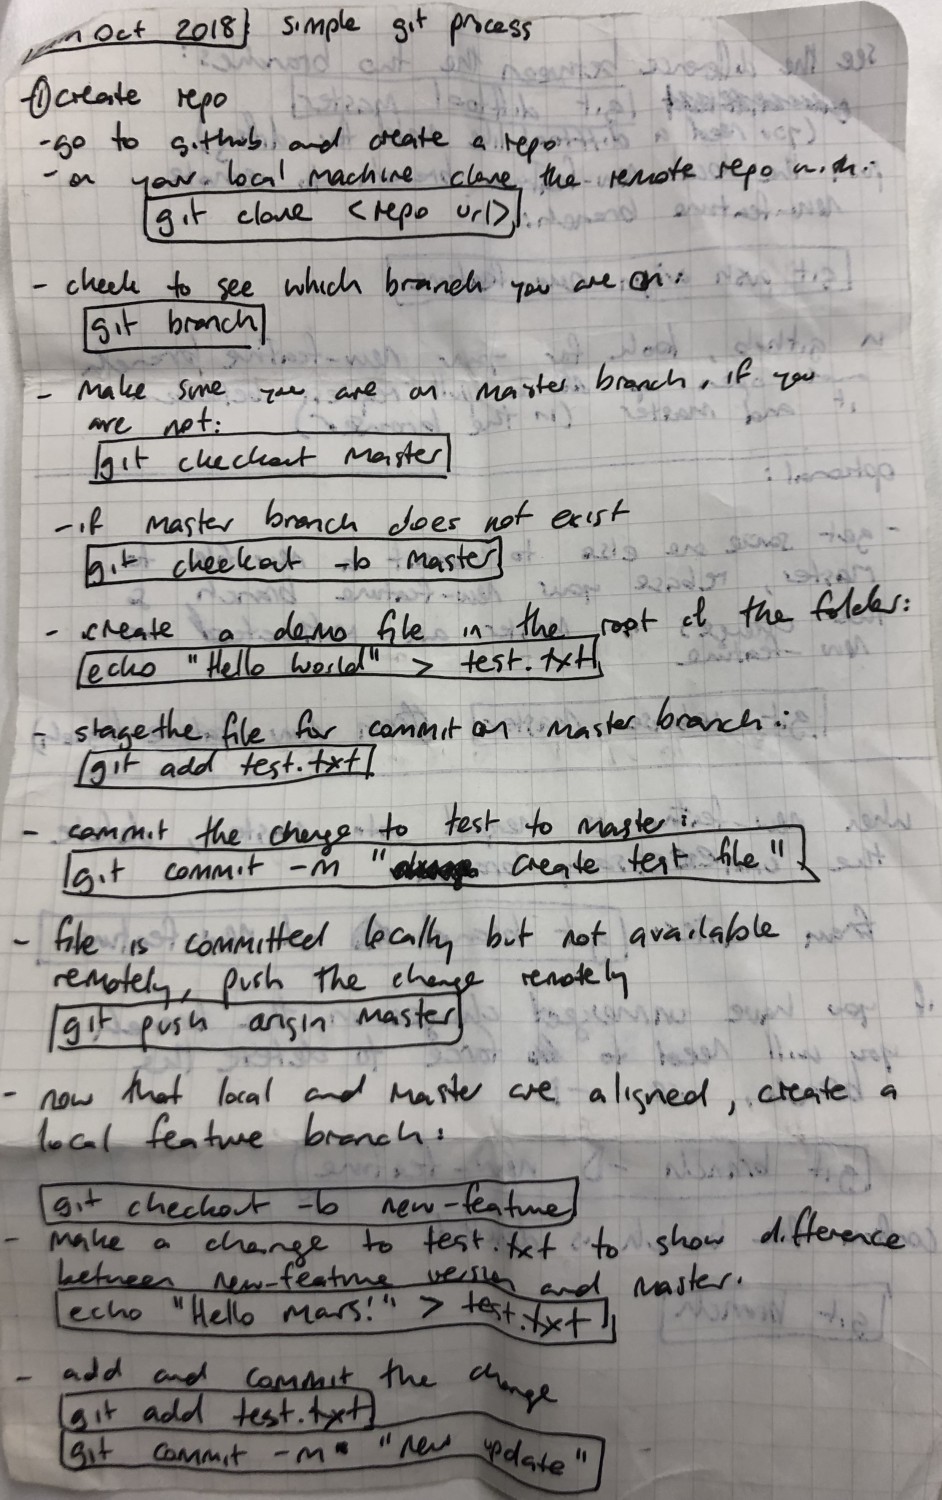 Oct 2018 simple git process
① create repo
- go to github and create a repo
- on your local machine clone the remote repo with:
git clone <repo url>
- check to see which branch you are on:
git branch
- make sure you are on master branch, if you
are not:
git checkout master
- if master branch does not exist
git checkout -b master
- create a demo file in the root of the folder:
echo "Hello world" > test.txt
- stage the file for commit on master branch:
git add test.txt
- commit the change to test to master:
git commit -m " create test file"
- file is committed locally but not available
remotely, push the change remotely
git push origin master
- now that local and master are aligned, create a
local feature branch:
git checkout -b new-feature
- make a change to test.txt to show difference
between new-feature version and master.
echo "Hello Mars!" > test.txt
- add and commit the change
git add test.txt
git commit -m "new update"